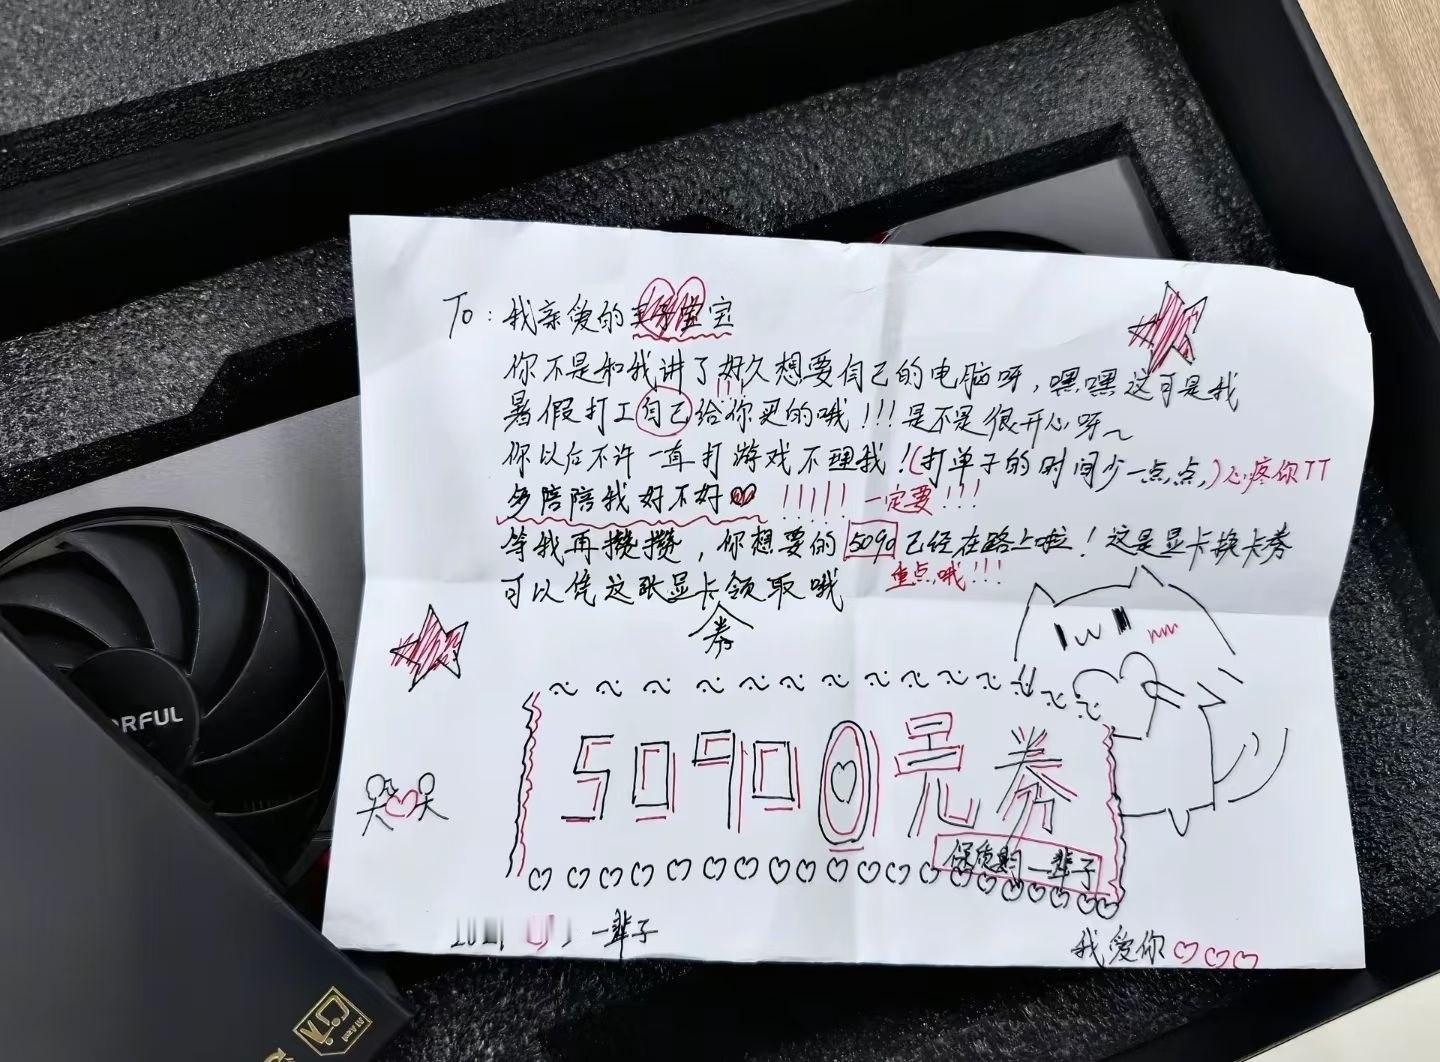 To：我亲爱的宝
你不是和我讲了好久想要自己的电脑呀，嘿嘿这可是我
暑假打工自己给你买的哦！!!是不是很开心呀~
你以后不许一直打游戏不理我！(打单子的时间少一点点，)心疼你TT
多陪陪我好不好 !!!!! 一定要!!!
等我再攒攒，你想要的5090已经在路上啦！这是显卡换卡券
重点哦!!!
可以凭这张显卡领取哦
券
5090
券
保质期一辈子
一辈子
我爱你
RFUL